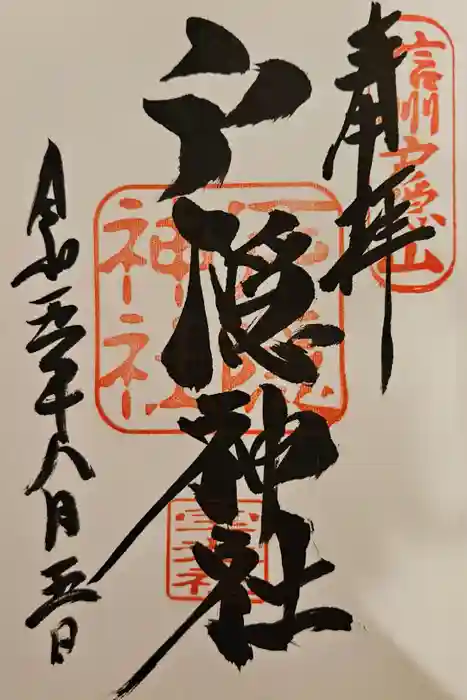 奉拝
信州戸隠山
戸隠神社
戸隠神社
宝光社
令和五年八月五日